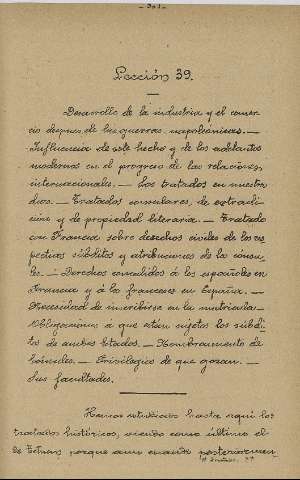 - 301 -
Lección 39.
Desarrollo de la industria y el comer-
cio despues de las guerras napoleónicas. —
Influencia de este hecho y de los adelantos
modernos en el progreso de las relaciones
internacionales. — Los tratados en nuestros
dias. — Tratados consulares, de extradi-
cion y de propiedad literaria. — Tratado
con Francia sobre derechos civiles de los res
pectivos súbditos y atribuciones de los consu-
les. — Derechos concedidos á los españoles en
Francia y á los franceses en España. —
Necesidad de inscribirse en la matricula. —
Obligaciones á que están sujetos los súbdi-
tos de ambos Estados. — Nombramiento de
Cónsules. — Privilegios de que gozan. —
Sus facultades.
Hemos estudiado hasta aquí los
tratados históricos, siendo como último el
de Tetuan, porque aun cuando posteriormen